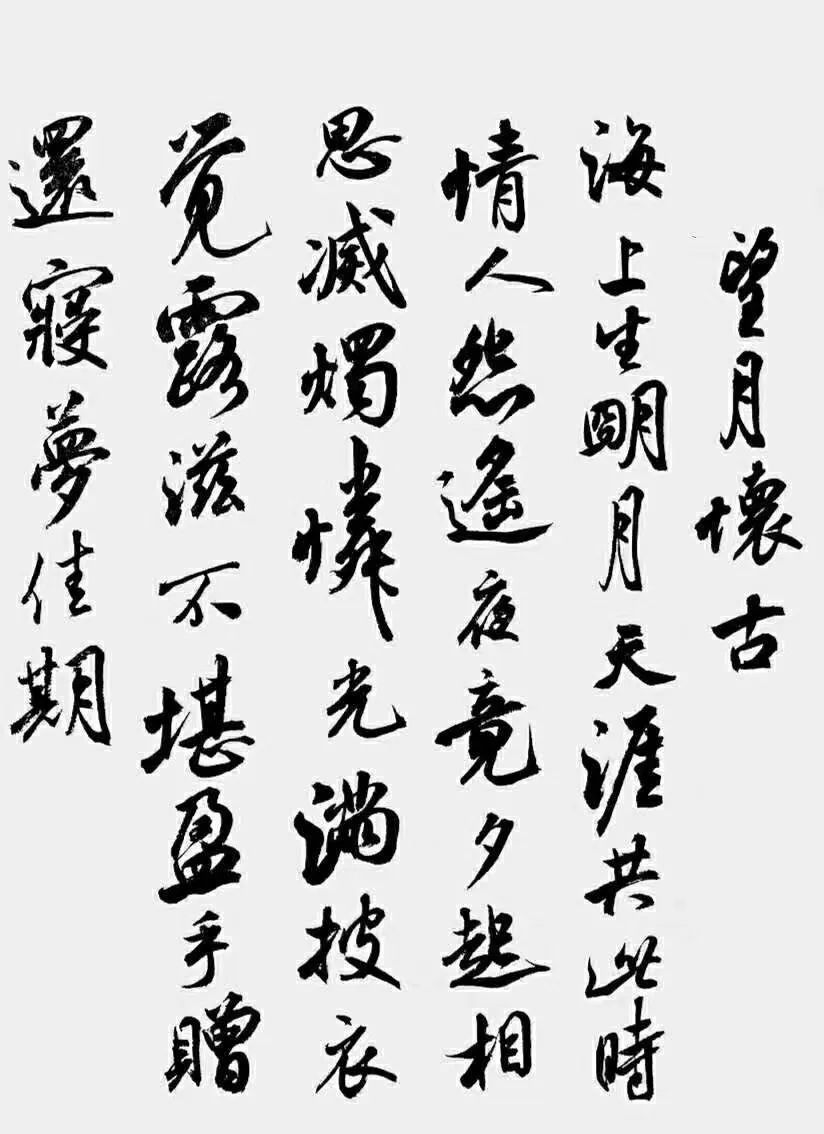 望月懷古
海上生明月天涯共此時
情人怨遙夜竟夕起相
思滅燭憐光滿披衣
覓露滋不堪盈手贈
還寢夢佳期